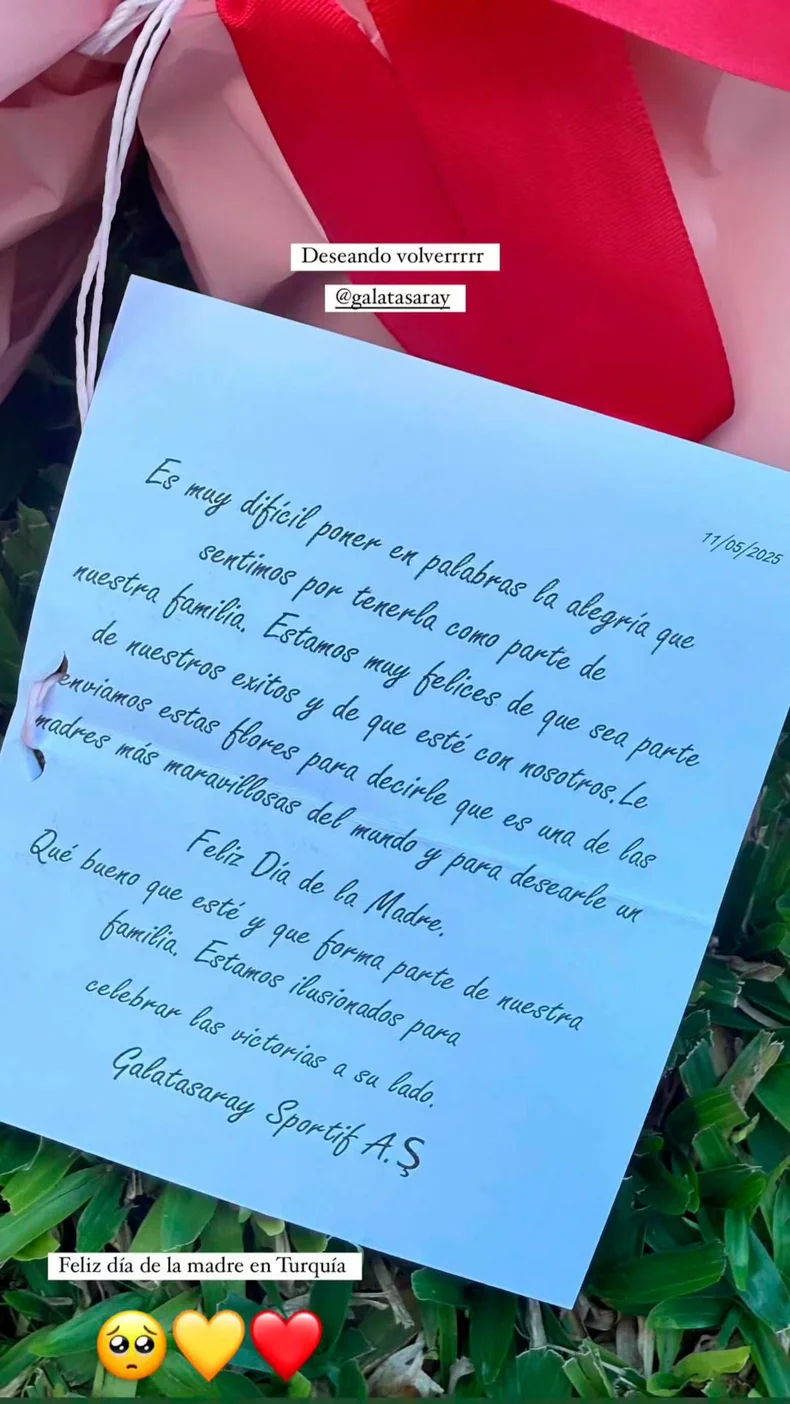 Deseando volverrrrr
@galatasaray
11/05/2025
Es muy difícil poner en palabras la alegría que
sentimos por tenerla como parte de
nuestra familia. Estamos muy felices de que sea parte
de nuestros exitos y de que esté con nosotros.Le
enviamos estas flores para decirle que es una de las
madres más maravillosas del mundo y para desearle un
Feliz Día de la Madre.
Qué bueno que esté y que forma parte de nuestra
familia. Estamos ilusionados para
celebrar las victorias a su lado.
Galatasaray Sportif A.Ş
Feliz día de la madre en Turquía